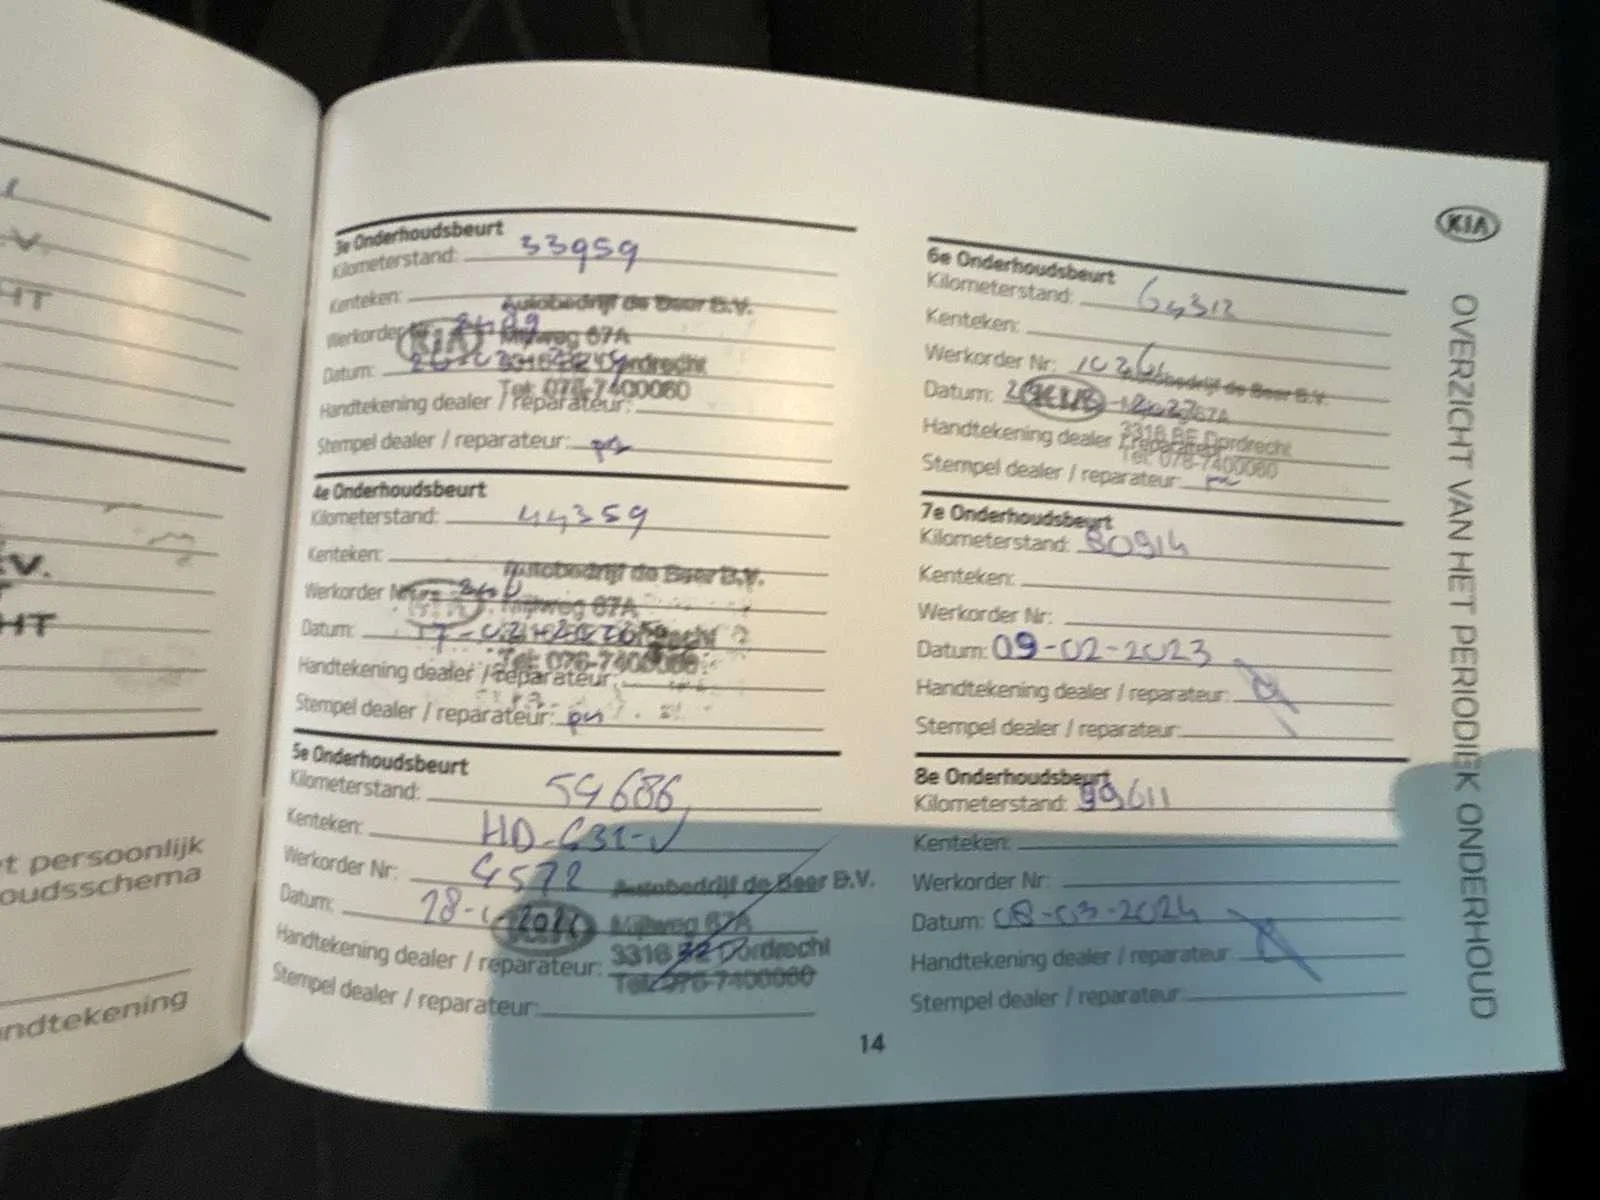 HT
EV.
HT
t persoonlijk
oudsschema
ndtekening
3e Onderhoudsbeurt
Kilometerstand: 33959
Kenteken:
Autobedrijf de Boer B.V.
Werkorder
KIA
Mijlweg 67A
Datum:
Dordrecht
Tel: 078-7400060
Handtekening dealer / reparateur:
Stempel dealer / reparateur:
4e Onderhoudsbeurt
Kilometerstand: 44359
Kenteken:
Autobedrijf de Boer B.V.
Werkorder
Mijlweg 67A
Datum:
Tel: 078-7400060
Handtekening dealer / reparateur:
Stempel dealer / reparateur:
5e Onderhoudsbeurt
Kilometerstand: 54686
Kenteken:
Werkorder Nr: 4572
Autobedrijf de Boer B.V.
Datum:
Mijlweg 67A
3316 Dordrecht
Handtekening dealer / reparateur:
Tel: 078-7400060
Stempel dealer / reparateur:
6e Onderhoudsbeurt
Kilometerstand: 64312
Kenteken:
Werkorder Nr:
Autobedrijf de Boer B.V.
Datum:
3316 BE Dordrecht
Handtekening dealer / reparateur
Tel: 078-7400060
Stempel dealer / reparateur:
7e Onderhoudsbeurt
Kilometerstand: 80914
Kenteken:
Werkorder Nr:
Datum: 09-02-2023
Handtekening dealer / reparateur:
Stempel dealer / reparateur:
8e Onderhoudsbeurt
Kilometerstand: 99611
Kenteken:
Werkorder Nr:
Datum: 08-03-2024
Handtekening dealer / reparateur
Stempel dealer / reparateur:
14
KIA
OVERZICHT VAN HET PERIODIEK ONDERHOUD